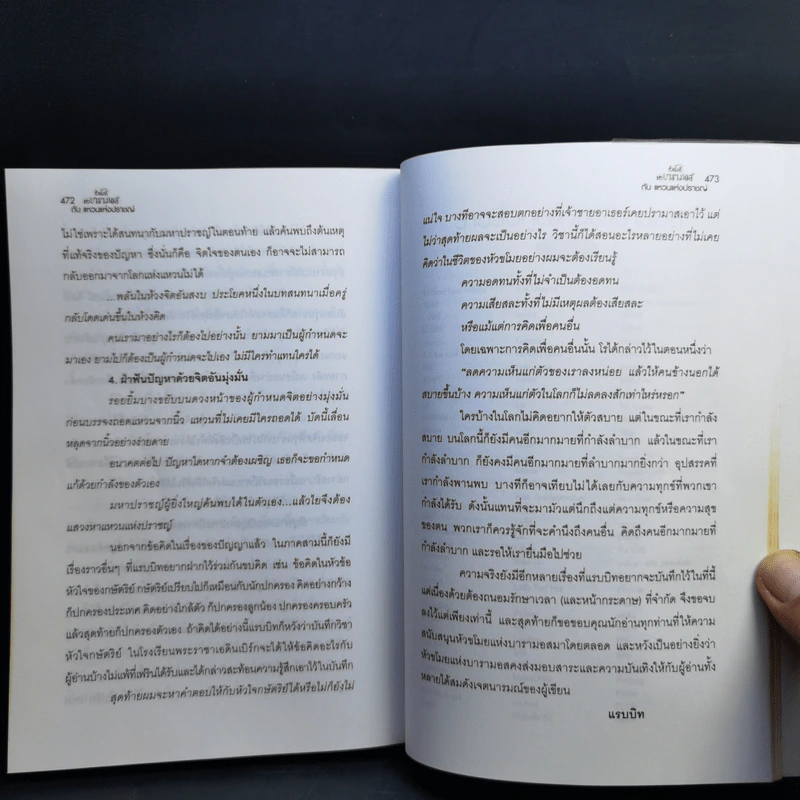 472
หัวขโมย
แห่งบารามอส
กับ แหวนแห่งปราชญ์
ไม่ใช่เพราะได้สนทนากับมหาปราชญ์ในตอนท้าย แล้วค้นพบถึงต้นเหตุ
ที่แท้จริงของปัญหา ซึ่งนั่นก็คือ จิตใจของตนเอง ก็อาจจะไม่สามารถ
กลับออกมาจากโลกแห่งแหวนได้
...พลันในห้วงจิตอันสงบ ประโยคหนึ่งในบทสนทนาเมื่อครู่
กลับโดดเด่นขึ้นในห้วงคิด
คนเรามาอย่างไรก็ต้องไปอย่างนั้น ยามมาเป็นผู้กำหนดจะ
มาเอง ยามไปก็ต้องเป็นผู้กำหนดจะไปเอง ไม่มีใครทำแทนใครได้
4. ฝ่าฟันปัญหาด้วยจิตอันมุ่งมั่น
รอยยิ้มบางขยับบนดวงหน้าของผู้กำหนดจิตอย่างมุ่งมั่น
ก่อนบรรจงถอดแหวนจากนิ้ว แหวนที่ไม่เคยมีใครถอดได้ บัดนี้เลื่อน
หลุดจากนิ้วอย่างง่ายดาย
อนาคตต่อไป ปัญหาใดหากจำต้องเผชิญ เธอก็จะขอกำหนด
แก้ด้วยกำลังของตัวเอง
มหาปราชญ์ผู้ยิ่งใหญ่ค้นพบได้ในตัวเอง...แล้วไยจึงต้อง
แสวงหาแหวนแห่งปราชญ์
นอกจากข้อคิดในเรื่องของปัญญาแล้ว ในภาคสามนี้ก็ยังมี
เรื่องราวอื่นๆ ที่แรบบิทอยากฝากไว้ร่วมกันขบคิด เช่น ข้อคิดในหัวข้อ
หัวใจของกษัตริย์ กษัตริย์เปรียบไปก็เหมือนกับนักปกครอง คิดอย่างกว้าง
ก็ปกครองประเทศ คิดอย่างใกล้ตัว ก็ปกครองลูกน้อง ปกครองครอบครัว
แล้วสุดท้ายก็ปกครองตัวเอง ถ้าคิดได้อย่างนี้แรบบิทก็หวังว่าบันทึกวิชา
หัวใจกษัตริย์ ในโรงเรียนพระราชาเอดินเบิร์กจะได้ให้ข้อคิดอะไรกับ
ผู้อ่านบ้างไม่แพ้ที่เฟรินได้รับและได้กล่าวสะท้อนความรู้สึกเอาไว้ในบันทึก
สุดท้ายผมจะหาคำตอบให้กับหัวใจกษัตริย์ได้หรือไม่ก็ยังไม่
หัวขโมย
แห่งบารามอส
473
กับ แหวนแห่งปราชญ์
แน่ใจ บางทีอาจจะสอบตกอย่างที่เจ้าชายอาเธอร์เคยปรามาสเอาไว้ แต่
ไม่ว่าสุดท้ายผลจะเป็นอย่างไร วิชานี้ก็ได้สอนอะไรหลายอย่างที่ไม่เคย
คิดว่าในชีวิตของหัวขโมยอย่างผมจะต้องเรียนรู้
ความอดทนทั้งที่ไม่จำเป็นต้องอดทน
ความเสียสละทั้งที่ไม่มีเหตุผลต้องเสียสละ
หรือแม้แต่การคิดเพื่อคนอื่น
โดยเฉพาะการคิดเพื่อคนอื่นนั้น โรได้กล่าวไว้ในตอนหนึ่งว่า
“ลดความเห็นแก่ตัวของเราลงหน่อย แล้วให้คนข้างนอกได้
สบายขึ้นบ้าง ความเห็นแก่ตัวในโลกก็ไม่ลดลงสักเท่าไหร่หรอก”
ใครบ้างในโลกไม่คิดอยากให้ตัวสบาย แต่ในขณะที่เรากำลัง
สบาย บนโลกนี้ก็ยังมีคนอีกมากมายที่กำลังลำบาก แล้วในขณะที่เรา
กำลังลำบาก ก็ยังคงมีคนอีกมากมายที่ลำบากมากยิ่งกว่า อุปสรรคที่
เรากำลังพานพบ บางทีก็อาจเทียบไม่ได้เลยกับความทุกข์ที่พวกเขา
กำลังได้รับ ดังนั้นแทนที่จะมามัวแต่นึกถึงแต่ความทุกข์หรือความสุข
ของตน พวกเราก็ควรรู้จักที่จะคำนึงถึงคนอื่น คิดถึงคนอีกมากมายที่
กำลังลำบาก และรอให้เรายื่นมือไปช่วย
ความจริงยังมีอีกหลายเรื่องที่แรบบิทอยากจะบันทึกไว้ในที่นี้
แต่เนื่องด้วยต้องถนอมรักษาเวลา (และหน้ากระดาษ) ที่จำกัด จึงขอจบ
ลงไว้แต่เพียงเท่านี้ และสุดท้ายก็ขอขอบคุณนักอ่านทุกท่านที่ให้ความ
สนับสนุนหัวขโมยแห่งบารามอสมาโดยตลอด และหวังเป็นอย่างยิ่งว่า
หัวขโมยแห่งบารามอสคงส่งมอบสาระและความบันเทิงให้กับผู้อ่านทั้ง
หลายได้สมดังเจตนารมณ์ของผู้เขียน
แรบบิท